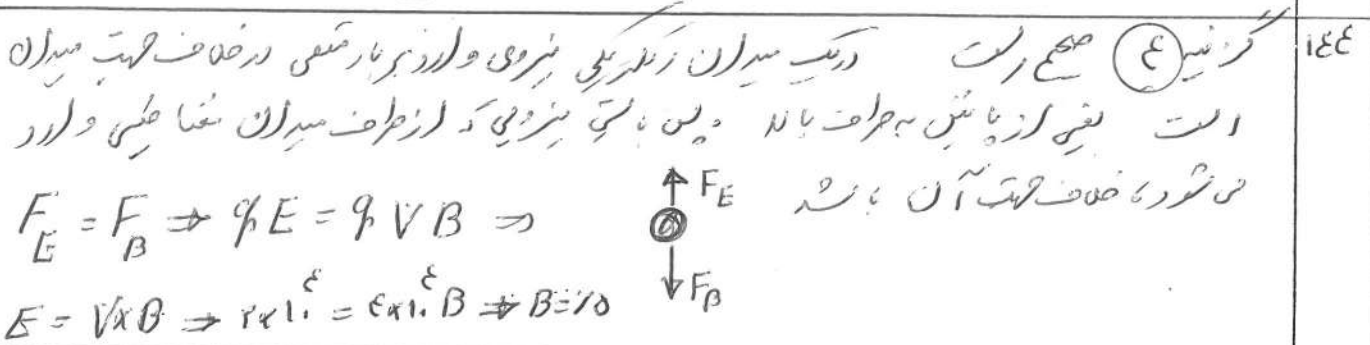 ۱۴۴ گزینه ۴ صحیح است در یک میدان الکتریکی نیروی وارد بر بار منفی در خلاف جهت میدان
است یعنی از پائین به طرف بالا پس بایستی نیرویی که از طرف میدان مغناطیسی وارد
می شود، خلاف جهت آن باشد
F_E
F_E = F_B ⇒ qE = qVB ⇒
F_B
E = V×B ⇒ ۲×۱۰^۴ = ۴×۱۰^۴ B ⇒ B=٪۵